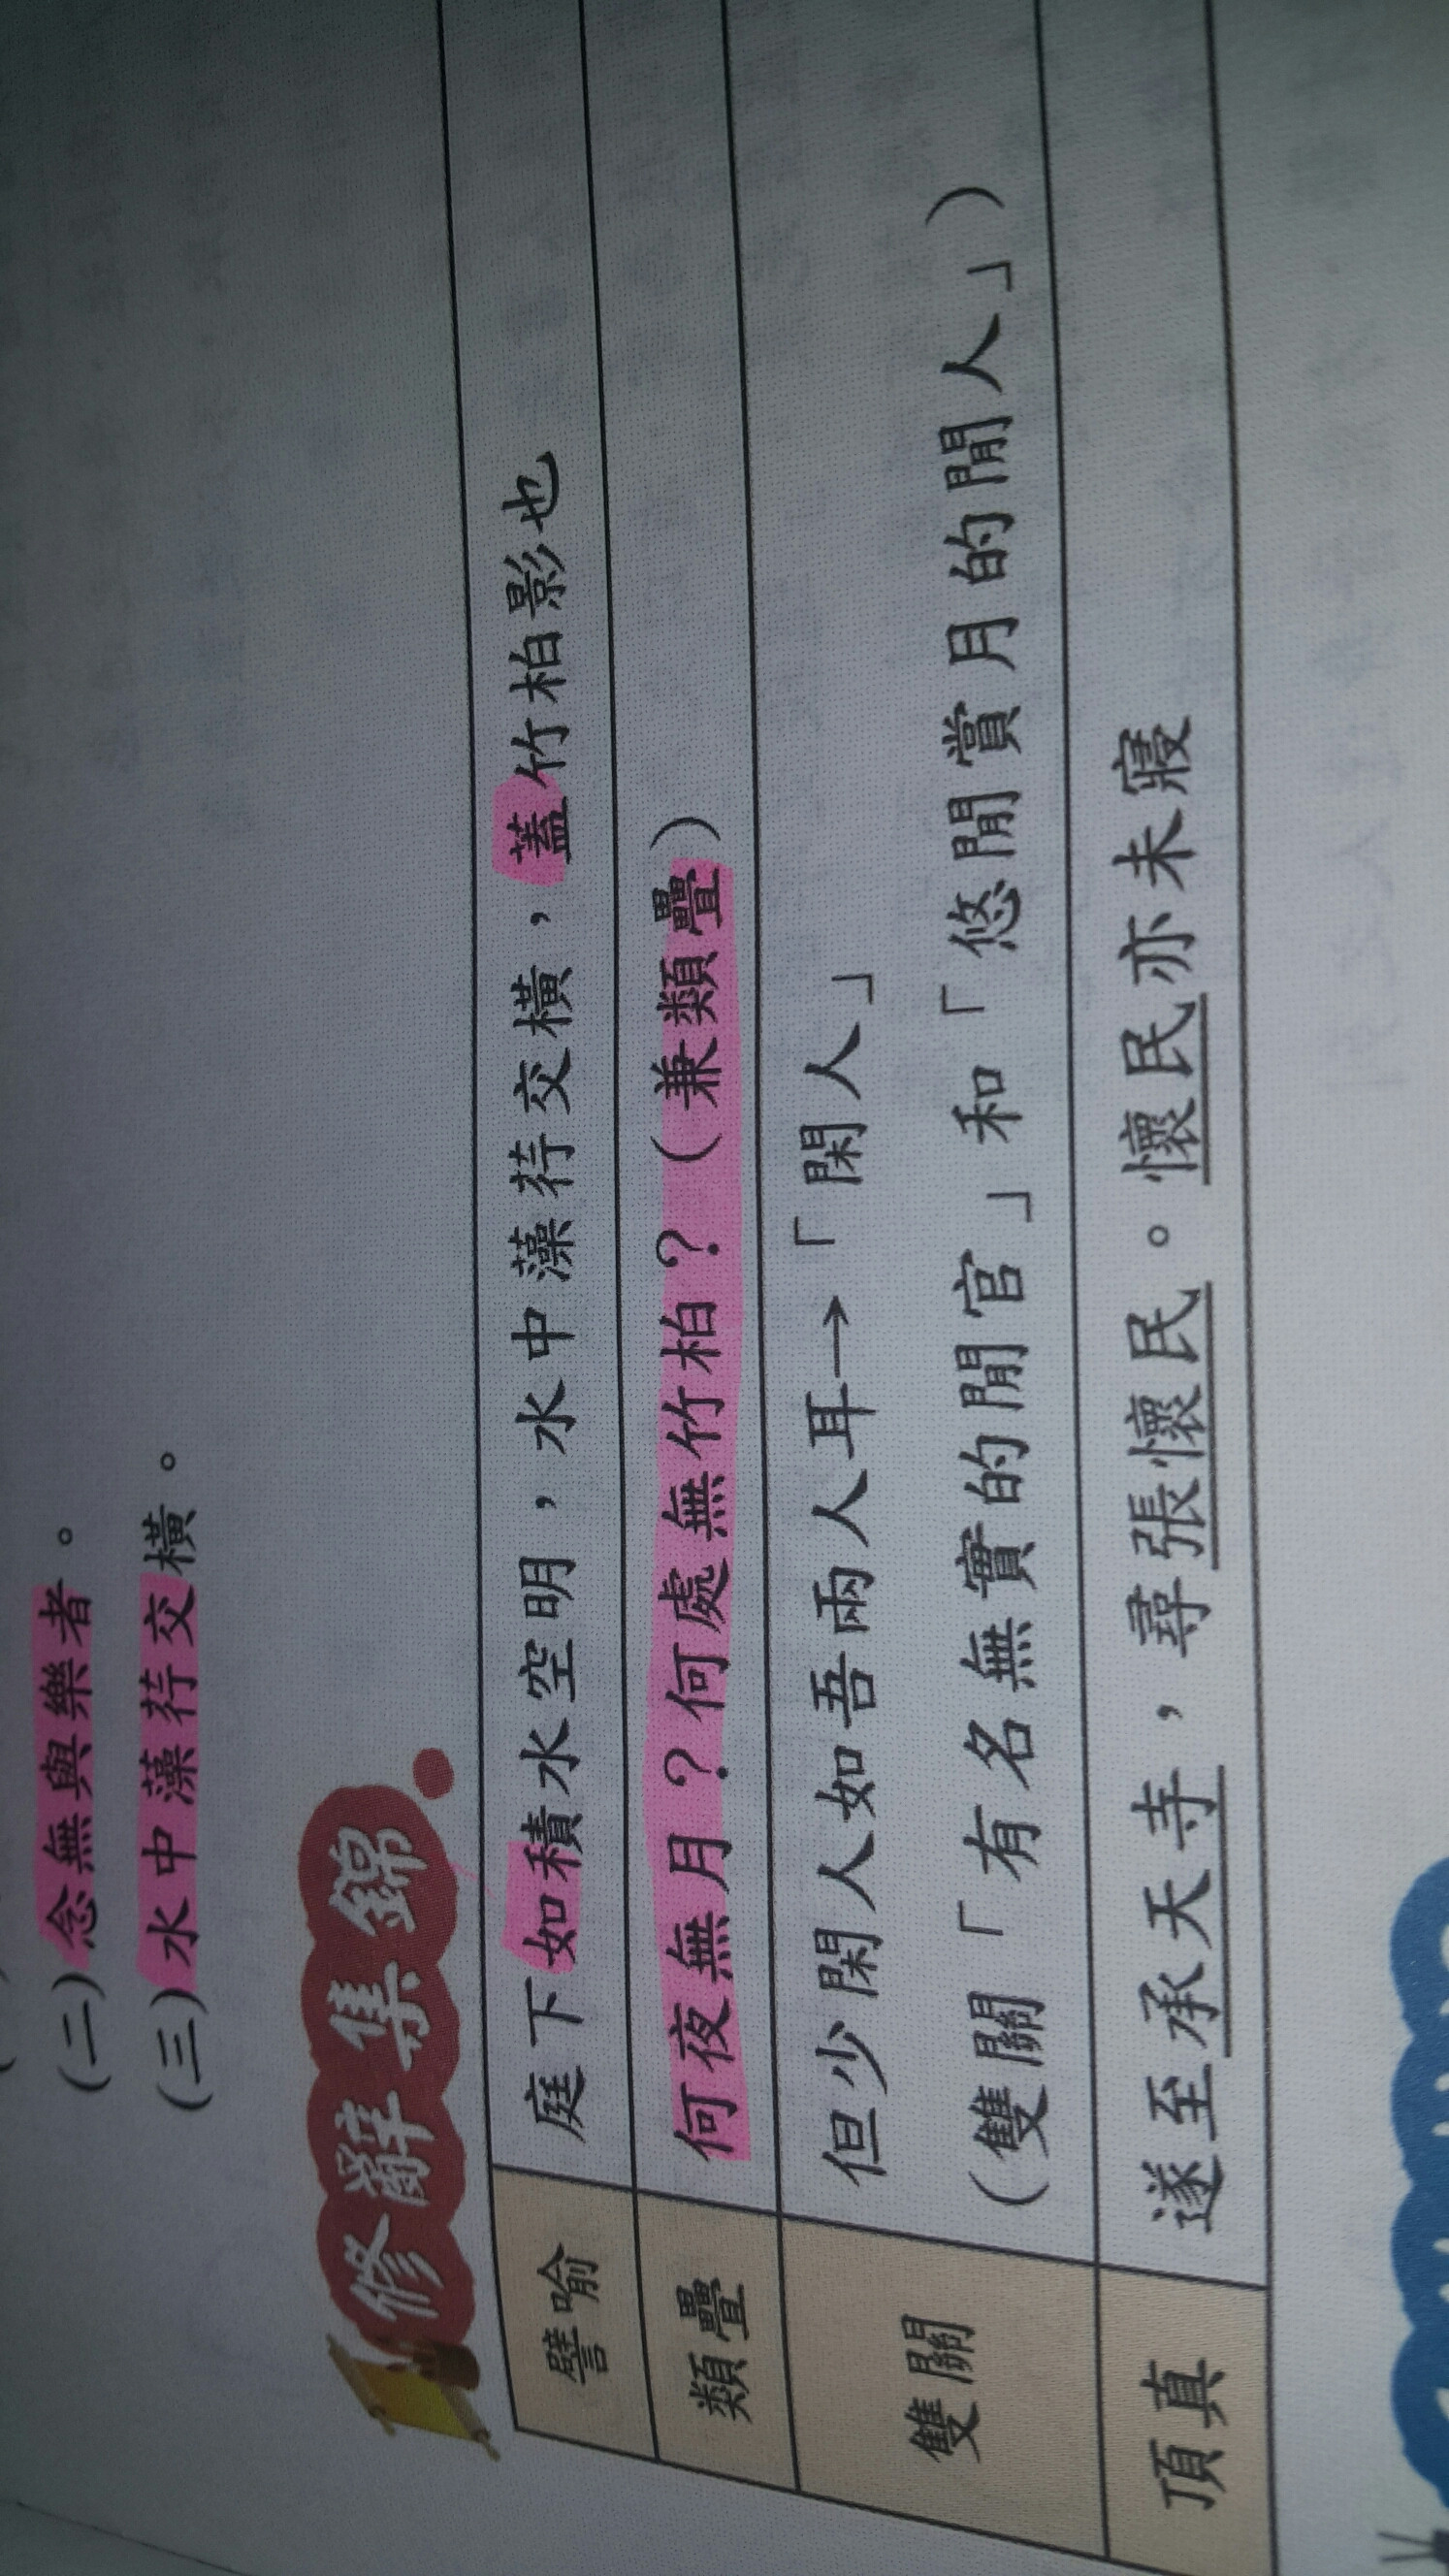 (二)念無與樂者。
(三)水中藻荇交橫。
修辭集錦
譬喻
庭下如積水空明，水中藻荇交橫，蓋竹柏影也
類疊
何夜無月？何處無竹柏？（兼類疊）
雙關
但少閑人如吾兩人耳→「閑人」
（雙關「有名無實的閒官」和「悠閒賞月的閒人」）
頂真
遂至承天寺，尋張懷民。懷民亦未寢